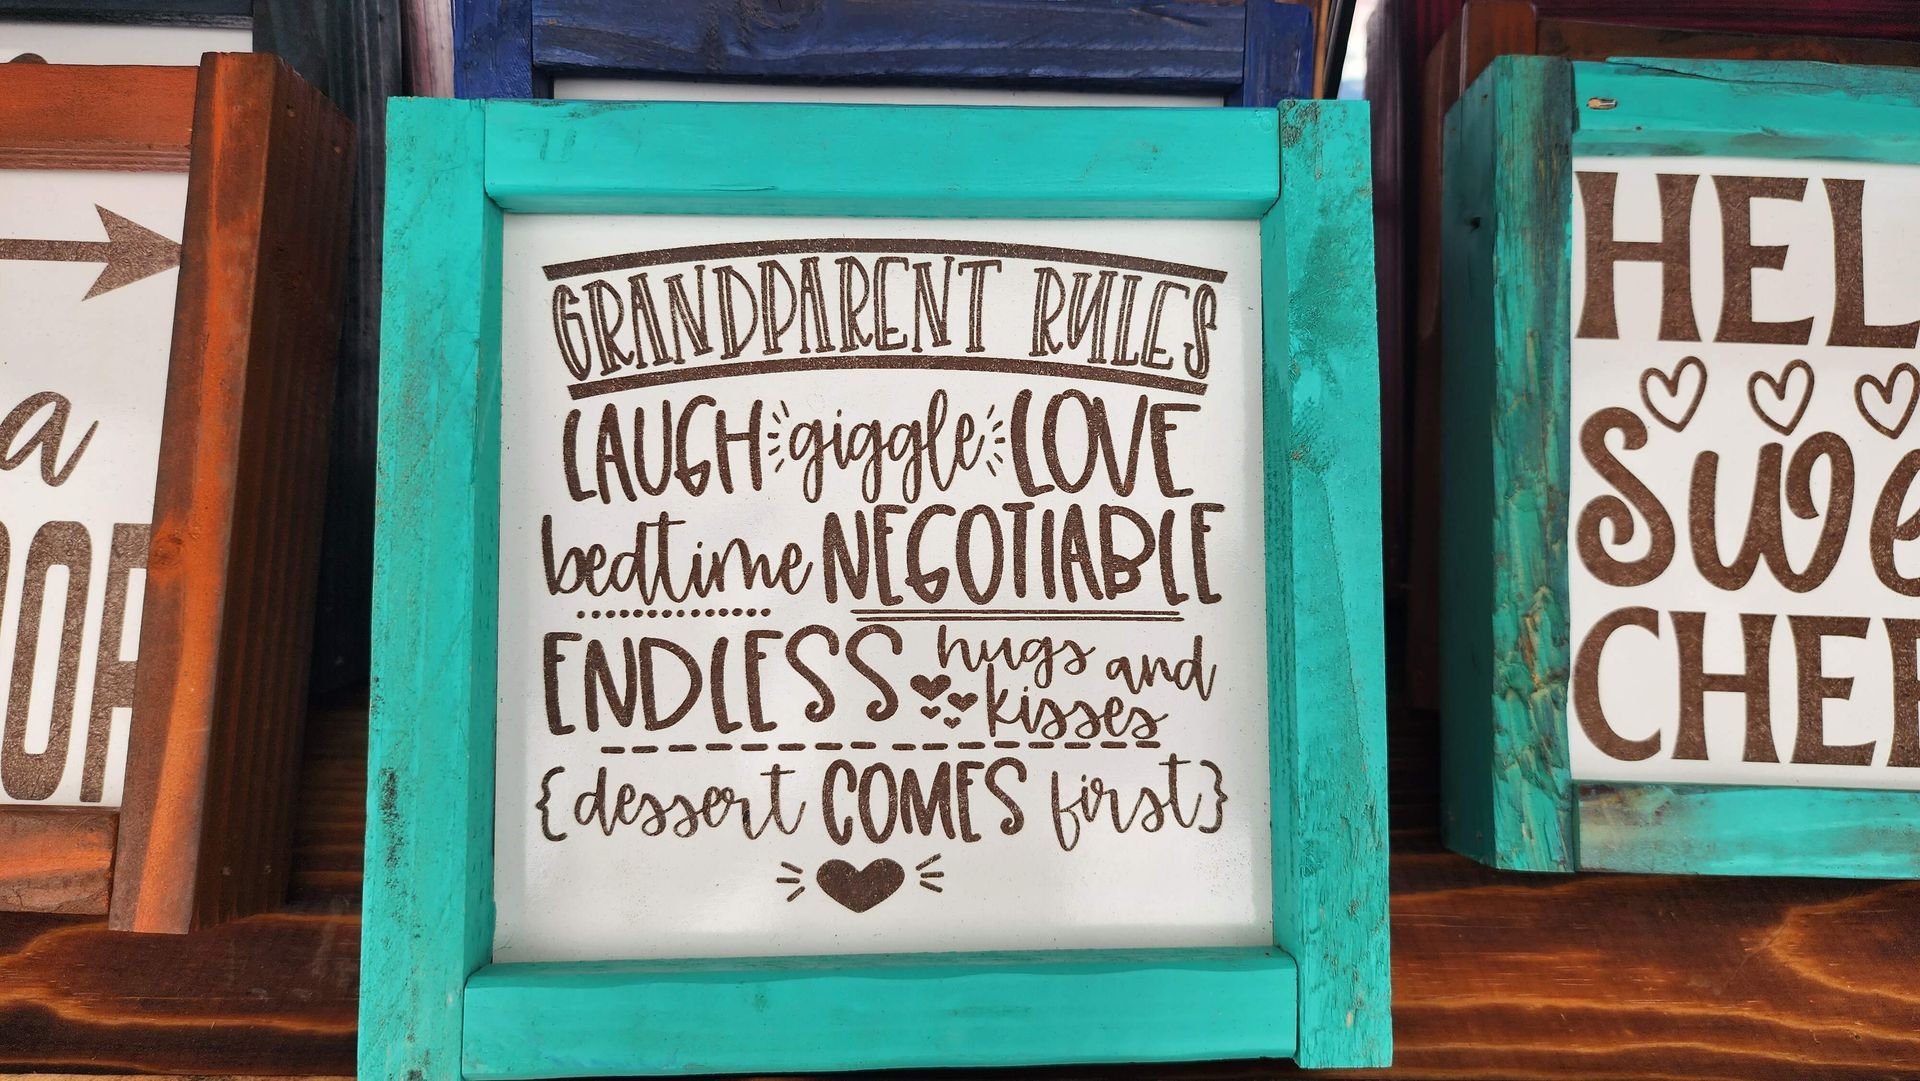 GRANDPARENT RULES
LAUGH giggle LOVE
bedtime NEGOTIABLE
ENDLESS hugs and
kisses
{dessert COMES first}
a
HEL
Swe
CHE